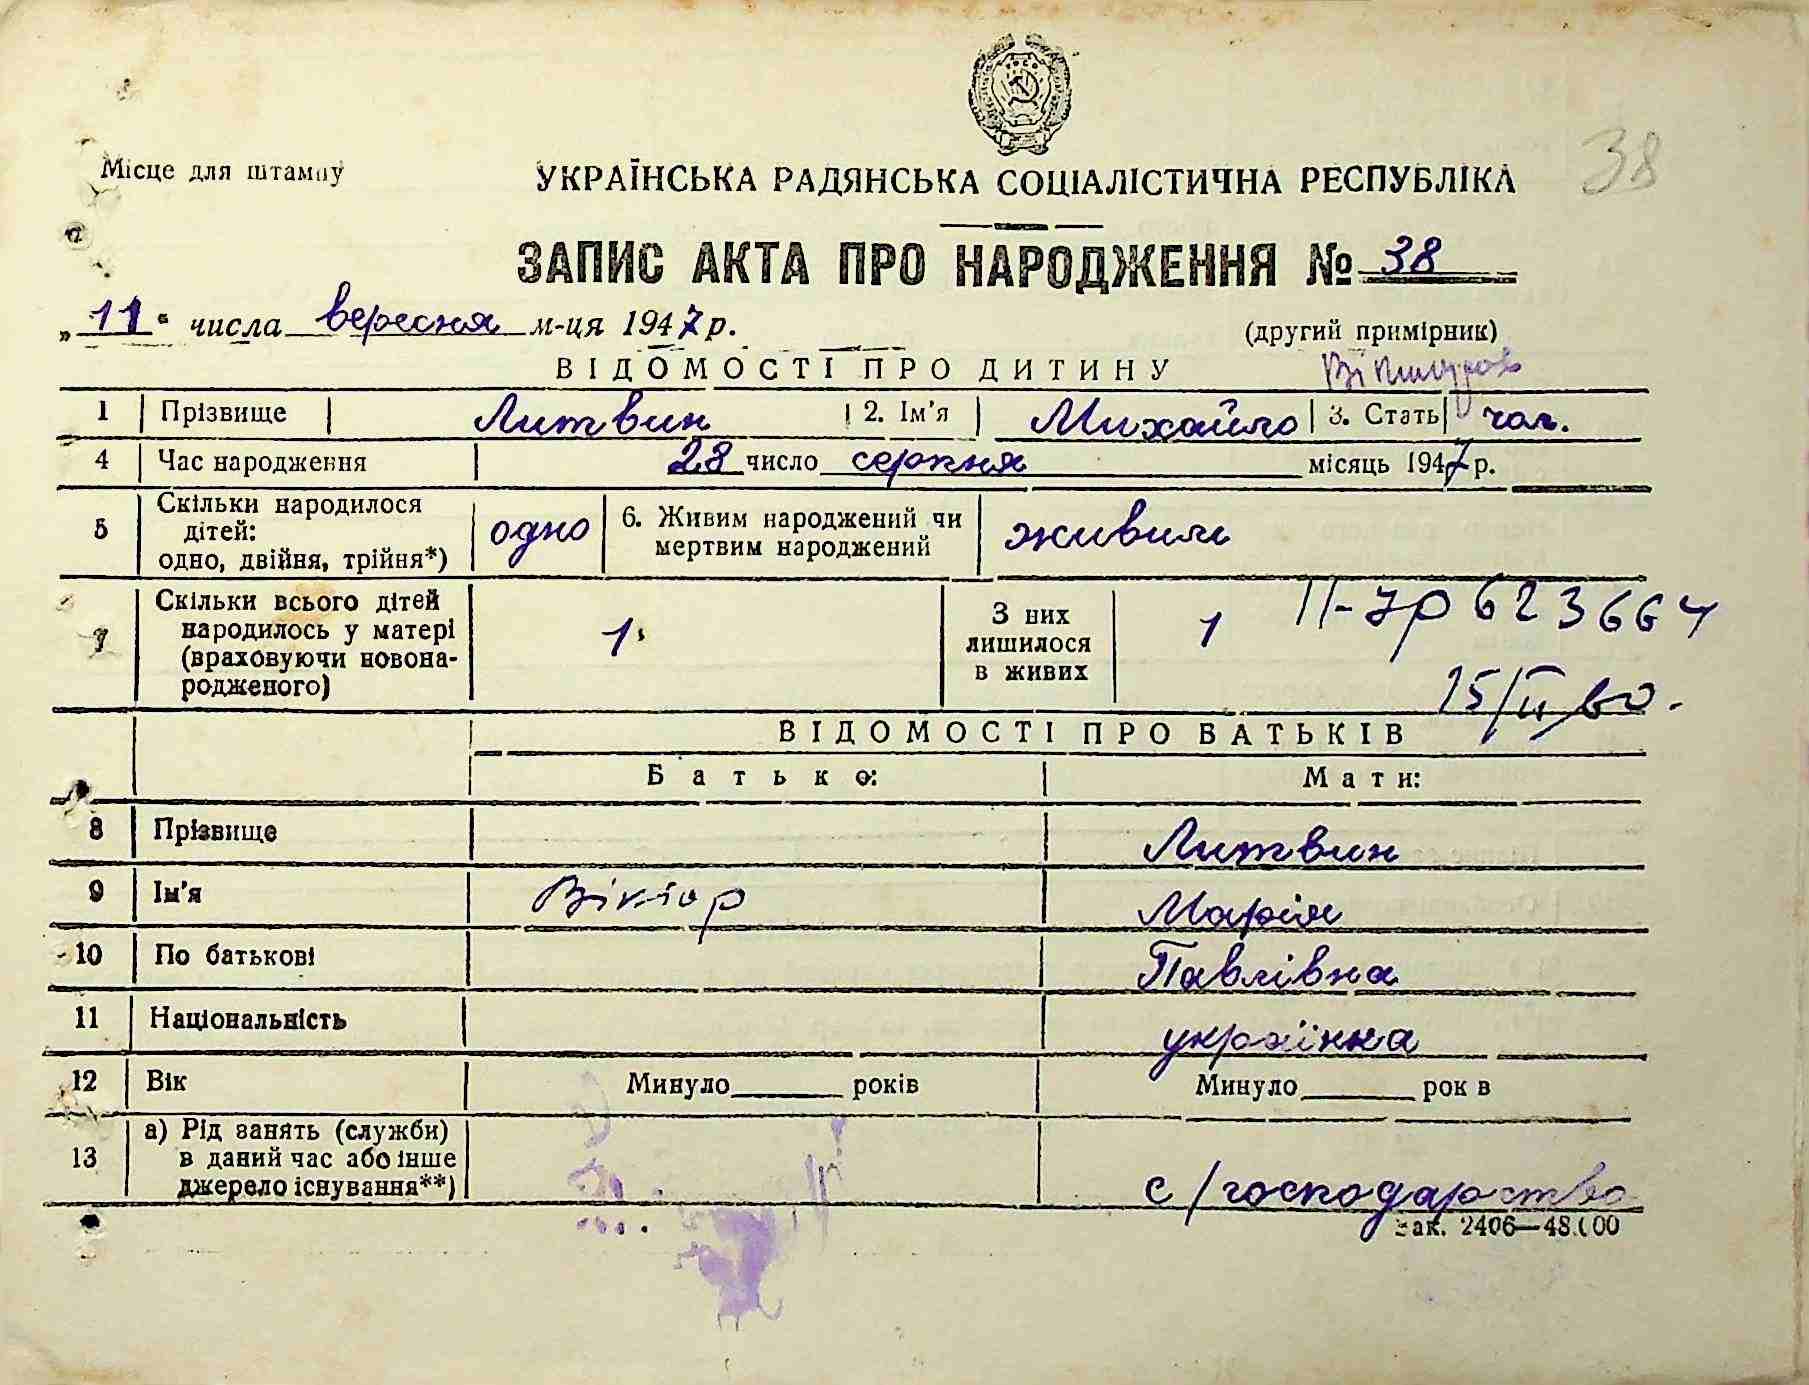 38
Місце для штампу
УКРАЇНСЬКА РАДЯНСЬКА СОЦІАЛІСТИЧНА РЕСПУБЛІКА
ЗАПИС АКТА ПРО НАРОДЖЕННЯ № 38
„11“ числа вересня м-ця 1947 р.
(другий примірник)
ВІДОМОСТІ ПРО ДИТИНУ
1 Прізвище Литвин 2. Ім'я Михайло 3. Стать чол.
4 Час народження 28 число серпня місяць 1947 р.
5 Скільки народилося дітей: одно, двійня, трійня*) одно 6. Живим народжений чи мертвим народжений живим
7 Скільки всього дітей народилось у матері (враховуючи новонародженого) 1 З них лишилося в живих 1
II-УР 623664
15/II/60.
ВІДОМОСТІ ПРО БАТЬКІВ
Батько: Мати:
8 Прізвище Литвин
9 Ім'я Віктор Марія
10 По батькові Павлівна
11 Національність українка
12 Вік Минуло років Минуло рок в
13 а) Рід занять (служби) в даний час або інше джерело існування**) с/господарство
Зак. 2406—48.000